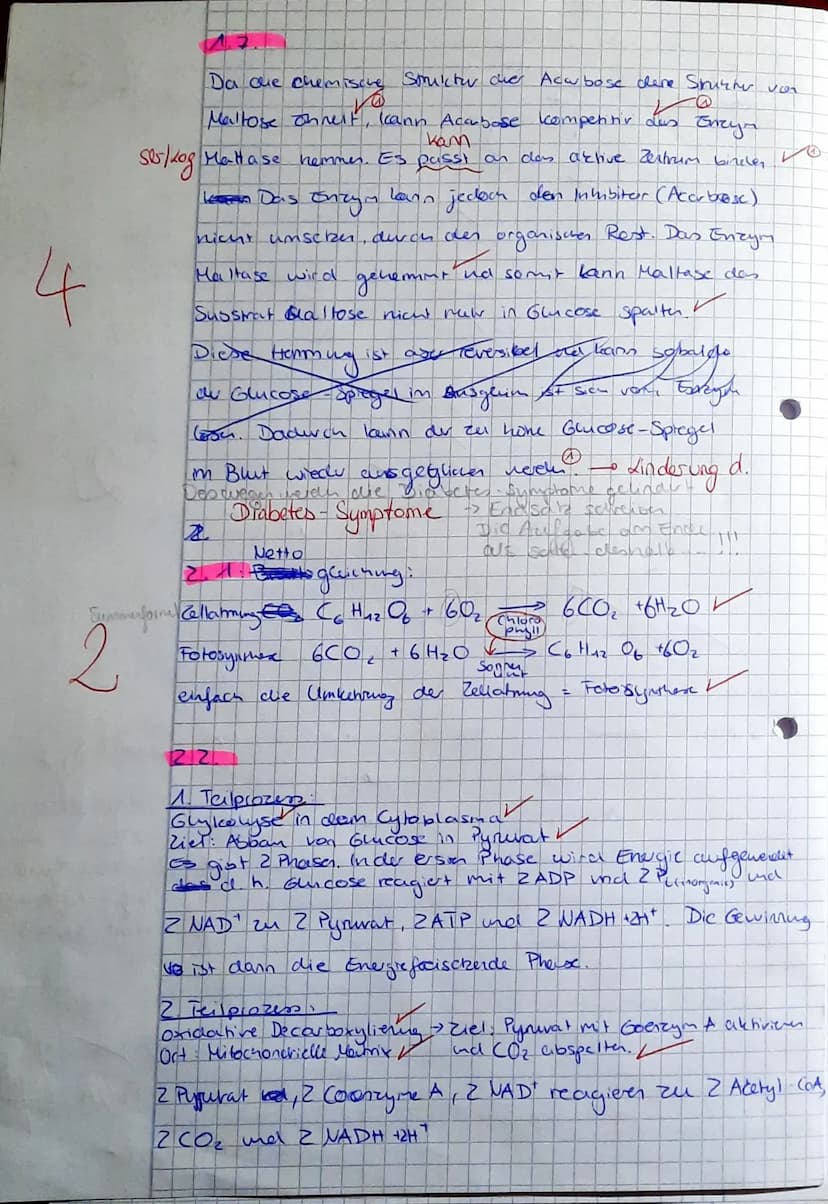 1.7.
Da die chemische Struktur der Acarbose der Struktur von
Maltose ähnelt, kann Acarbose kompetitiv das Enzym
kann
Sbs/Log Maltase hemmen. Es passt an das aktive Zentrum binden
Das Enzym kann jedoch den Inhibitor (Acarbose)
nicht umsetzen, durch den organischen Rest. Das Enzym
4
Maltase wird gehemmt und somit kann Maltase das
Substrat Maltose nicht mehr in Glucose spalten.
Diese Hemmung ist aber reversibel und kann sobald
der Glucose-Spiegel im Ausgleich ist sich vom Enzym
lösen. Dadurch kann der zu hohe Glucose-Spiegel
im Blut wieder ausgeglichen werden. → Linderung d.
Deswegen werden die Diabetes-Symptome gelindert
Diabetes-Symptome → Endsatz schreiben
2. Die Aufgabe am Ende
als Satz deshalb ... !!!
Netto
2.1. gleichung:
Summenformel Zellatmung C6H12O6 + 6O2 → 6CO2 + 6H2O
Chlorophyll
2
Fotosynthese 6CO2 + 6H2O → C6H12O6 + 6O2
einfach die Umkehrung der Zellatmung = Fotosynthese
2.2.
1. Teilprozess:
Glykolyse in dem Cytoplasma
Ziel: Abbau von Glucose in Pyruvat
Es gibt 2 Phasen. In der ersten Phase wird Energie aufgewendet
d.h. Glucose reagiert mit 2 ADP und 2 P(inorganic) und
2 NAD+ zu 2 Pyruvat, 2 ATP und 2 NADH + 2H+. Die Gewinnung
ist dann die Energiefreisetzende Phase.
2 Teilprozess:
Oxidative Decarboxylierung → Ziel: Pyruvat mit Coenzym A aktivieren
Ort: Mitochondrielle Matrix und CO2 abspalten.
2 Pyruvat, 2 Coenzyme A, 2 NAD+ reagieren zu 2 Acetyl-CoA,
2 CO2 und 2 NADH + 2H+